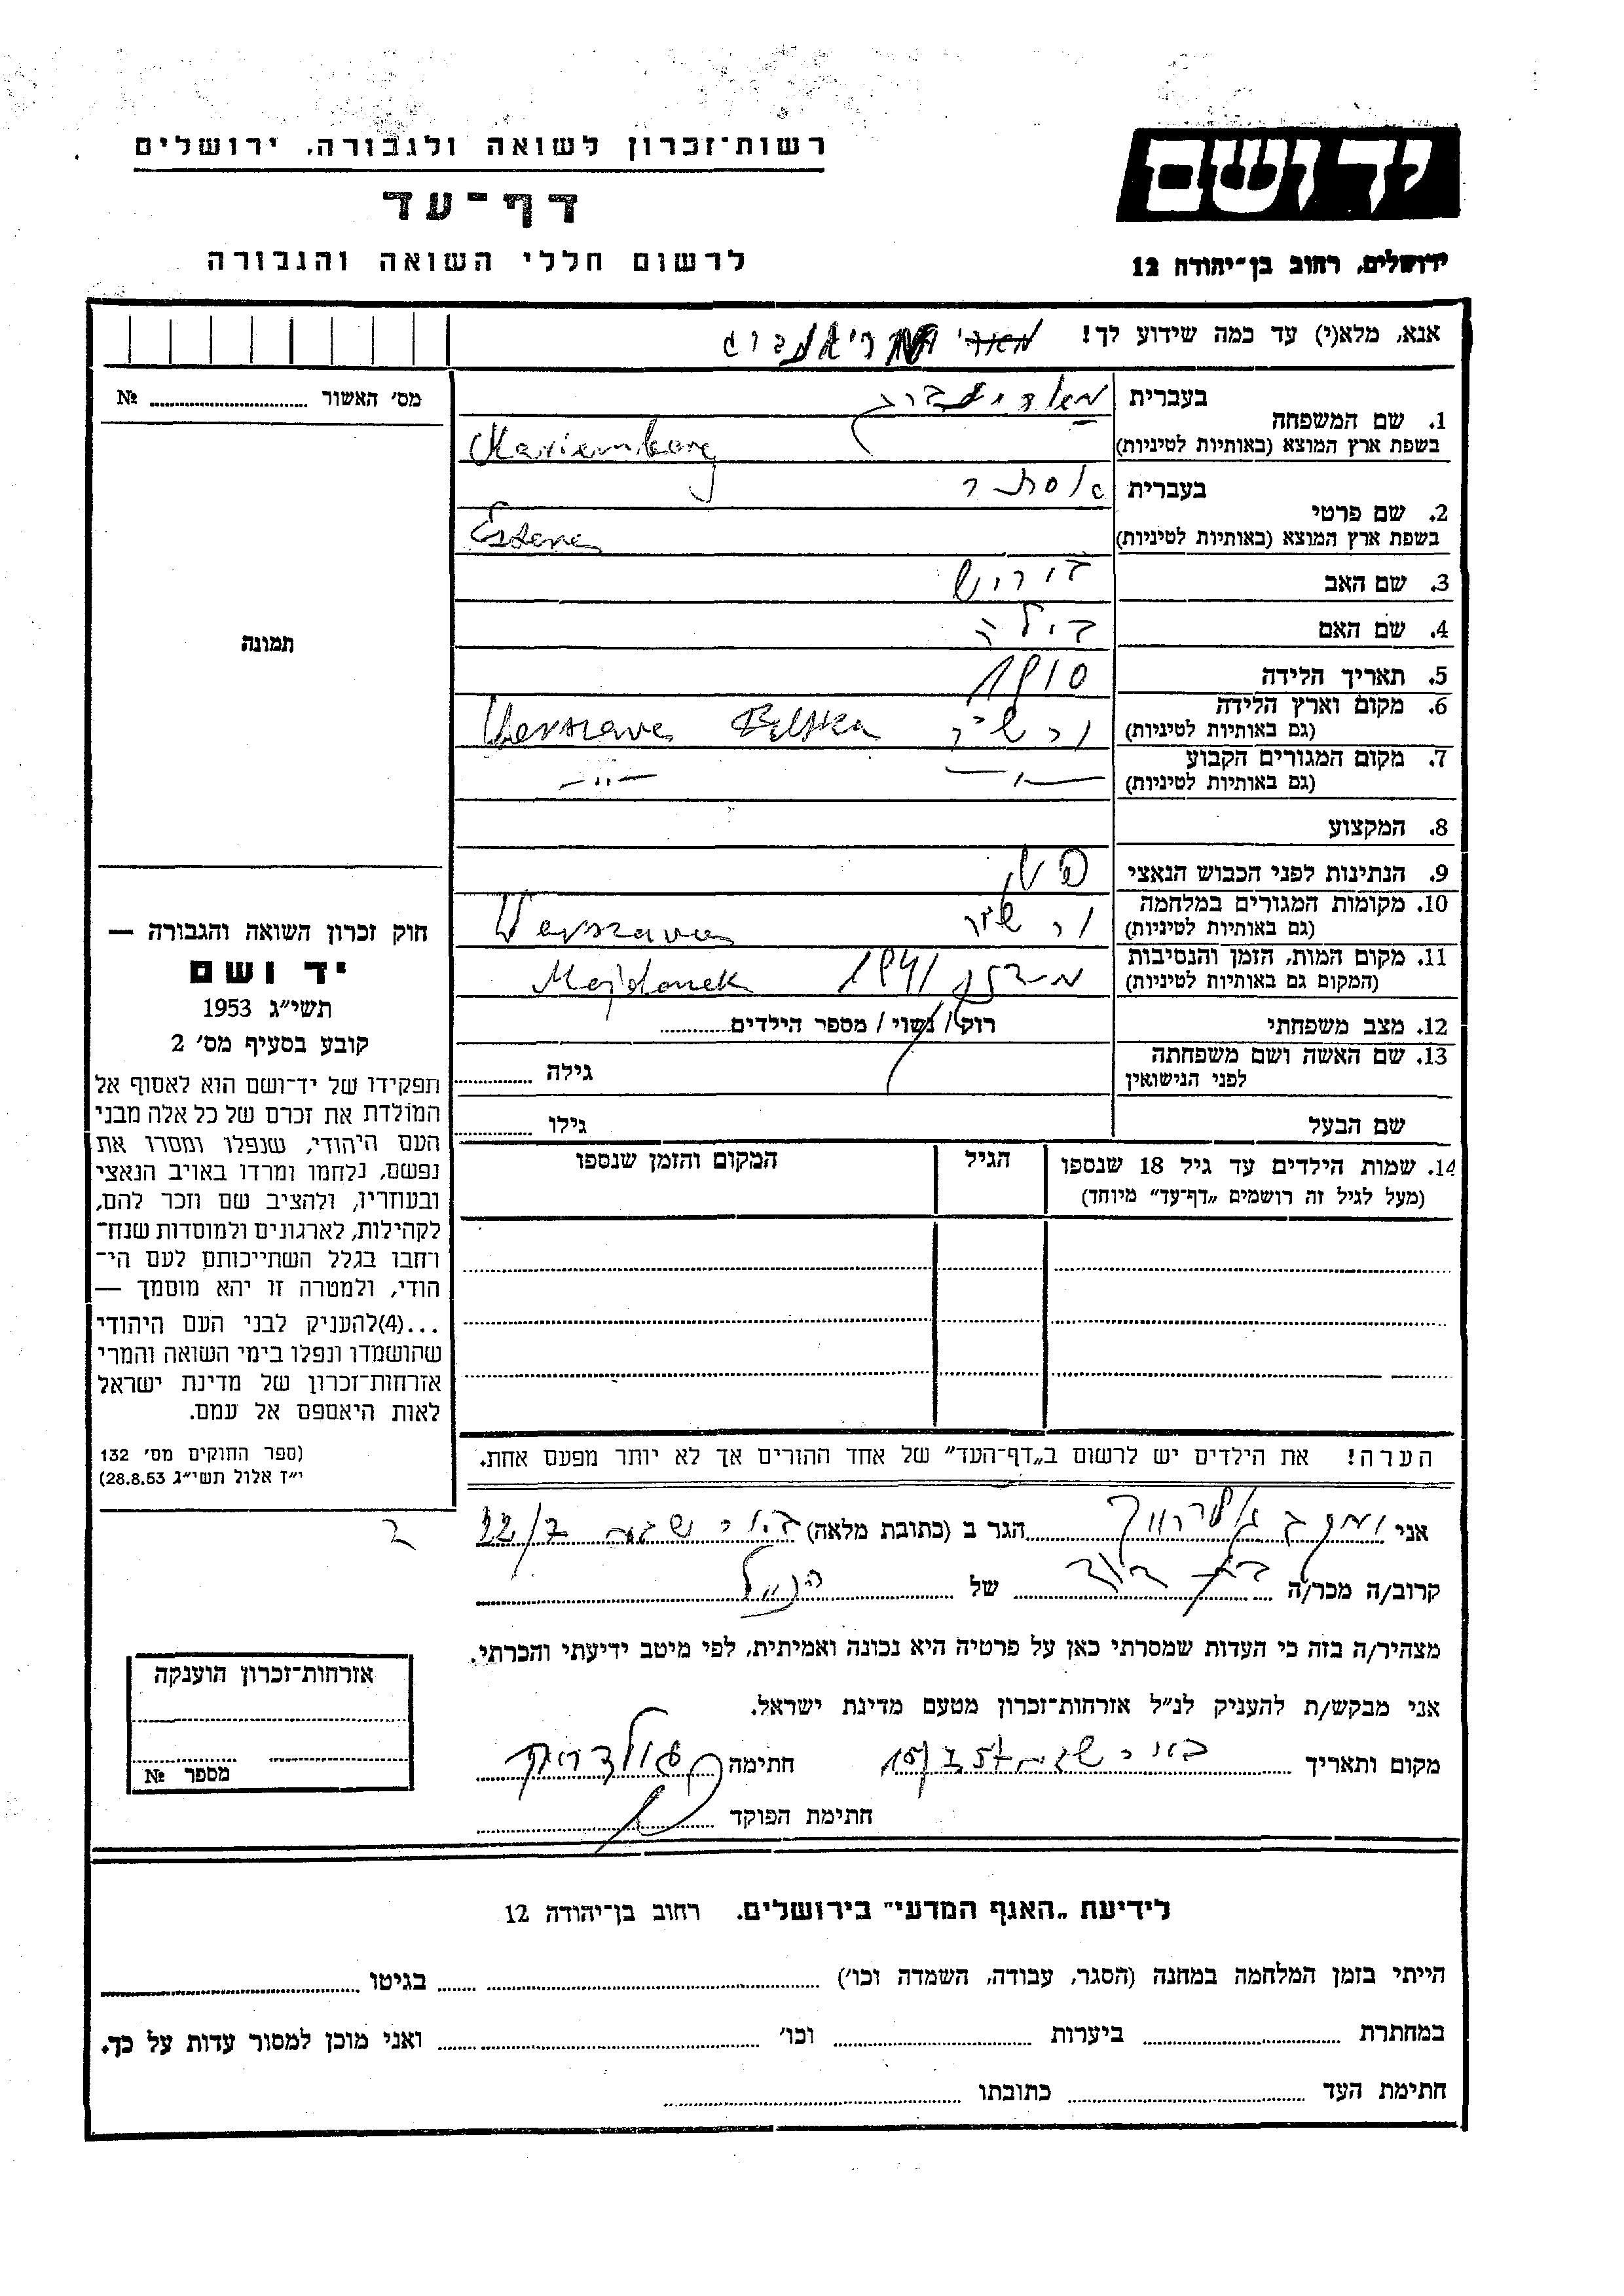 רשות־זכרון לשואה ולגבורה, ירושלים
יד ושם
דף־עד
לרשום חללי השואה והגבורה
ירושלים, רחוב בן־יהודה 12
אנא, מלא(י) עד כמה שידוע לך!
מס׳ האשור № ........
1. שם המשפחה
בעברית
בשפת ארץ המוצא (באותיות לטיניות)
2. שם פרטי
בעברית אסתר
בשפת ארץ המוצא (באותיות לטיניות)
3. שם האב
4. שם האם
5. תאריך הלידה 1910
6. מקום וארץ הלידה
(גם באותיות לטיניות) Warszawa
7. מקום המגורים הקבוע
(גם באותיות לטיניות) —״—
8. המקצוע
9. הנתינות לפני הכבוש הנאצי
10. מקומות המגורים במלחמה
(גם באותיות לטיניות) Warszawa
11. מקום המות, הזמן והנסיבות
(המקום גם באותיות לטיניות) 1941 Majdanek
12. מצב משפחתי רוק / נשוי / מספר הילדים........
13. שם האשה ושם משפחתה
לפני הנישואין גילה ........
שם הבעל גילו ........
14. שמות הילדים עד גיל 18 שנספו
(מעל לגיל זה רושמים „דף־עד״ מיוחד)
הגיל
המקום והזמן שנספו
תמונה
חוק זכרון השואה והגבורה —
יד ושם
תשי״ג 1953
קובע בסעיף מס׳ 2
תפקידו של יד־ושם הוא לאסוף אל
המולדת את זכרם של כל אלה מבני
העם היהודי, שנפלו ומסרו את
נפשם, נלחמו ומרדו באויב הנאצי
ובעוזריו, ולהציב שם וזכר להם,
לקהילות, לארגונים ולמוסדות שנח־
רחבו בגלל השתייכותם לעם הי־
הודי, ולמטרה זו יהא מוסמך —
...(4)להעניק לבני העם היהודי
שהושמדו ונפלו בימי השואה והמרי
אזרחות־זכרון של מדינת ישראל
לאות היאספם אל עמם.
(ספר החוקים מס׳ 132
י״ד אלול תשי״ג 28.8.53)
הערה! את הילדים יש לרשום ב„דף־העד״ של אחד ההורים אך לא יותר מפעם אחת.
אני ........ הגר ב (כתובת מלאה) באר שבע 22/7
קרוב/ה מכר/ה ........ של הנ״ל
מצהיר/ה בזה כי העדות שמסרתי כאן על פרטיה היא נכונה ואמיתית, לפי מיטב ידיעתי והכרתי.
אני מבקש/ת להעניק לנ״ל אזרחות־זכרון מטעם מדינת ישראל.
מקום ותאריך באר שבע חתימה
חתימת הפוקד
אזרחות־זכרון הוענקה
מספר №
לידיעת „האגף המדעי״ בירושלים. רחוב בן־יהודה 12
הייתי בזמן המלחמה במחנה (הסגר, עבודה, השמדה וכו׳) ........ בגיטו ........
במחתרת ........ ביערות ........ וכו׳ ........ ואני מוכן למסור עדות על כך.
חתימת העד ........ כתובתו ........